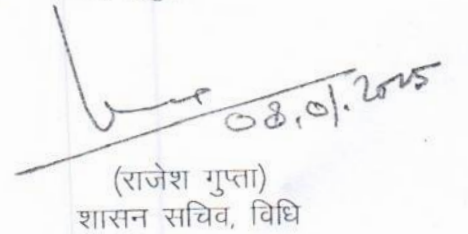 08.01.2025
(राजेश गुप्ता)
शासन सचिव, विधि